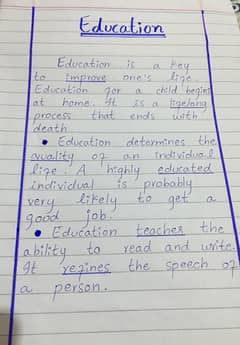 Education
Education is a key
to improve one's life.
Education for a child begins
at home. It is a lifelong
process that ends with
death
• Education determines the
quality of an individual
life. A highly educated
individual is probably
very likely to get a
good job.
• Education teaches the
ability to read and write.
It refines the speech of
a person.